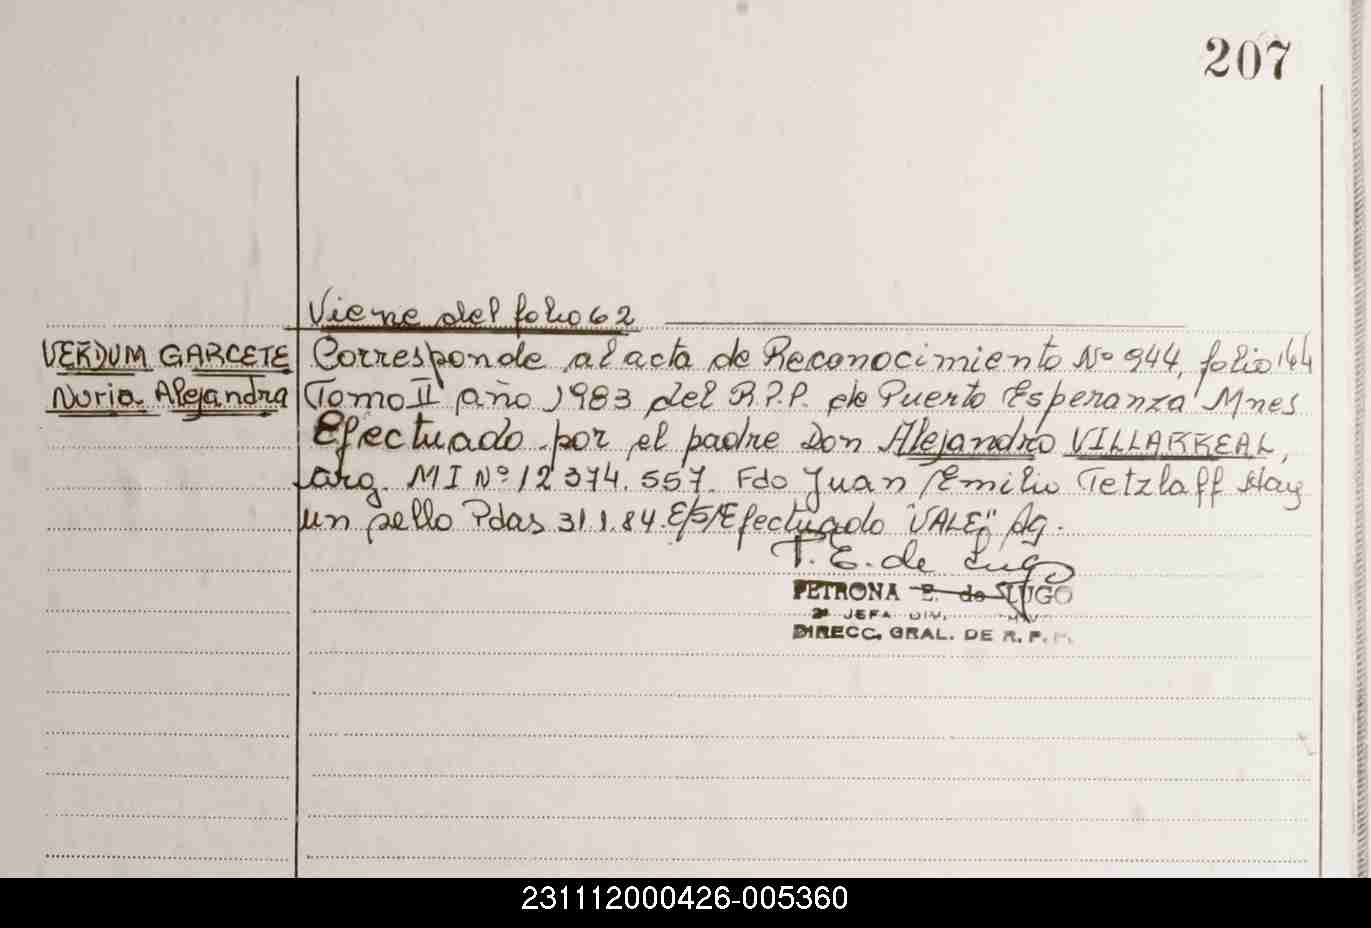 207
Viene del folio 62
VERDUM GARCETE
Nuria Alejandra
Corresponde al acta de Reconocimiento Nº 944, folio 144
Tomo II año 1983 del R.P.P. de Puerto Esperanza Mnes
Efectuado por el padre Don Alejandro VILLARREAL,
arg. M I Nº 12 374.557. Fdo Juan Emilio Tetzlaff Hay
un sello Pdas 31 1.84. E/S/Efectuado "VALE" Ag.
P. E. de Lugo
PETRONA E. de LUGO
2ª JEFA DIV.
DIRECC. GRAL. DE R. P.
231112000426-005360